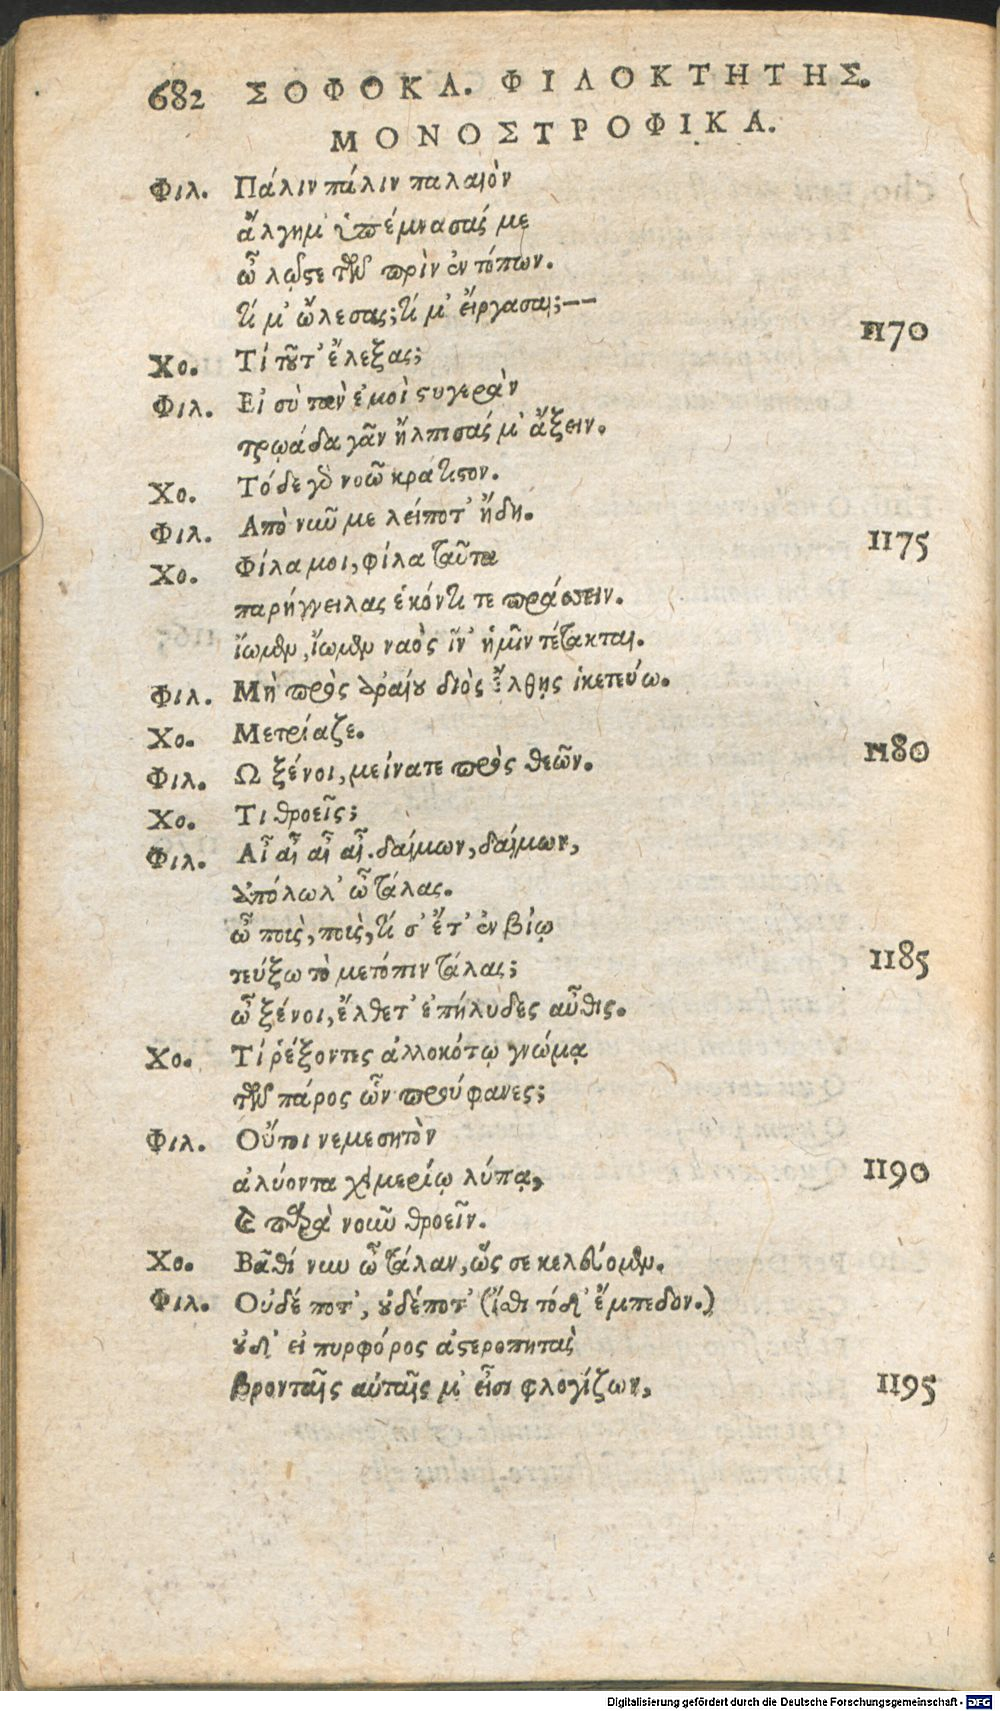 682 ΣΟΦΟΚΛ. ΦΙΛΟΚΤΗΤΗΣ.
ΜΟΝΟΣΤΡΟΦΙΚΑ.
Φιλ. Πάλιν πάλιν παλαιὸν
ἄλγημ' ὑπέμνασάς με
ὦ λῷστε τῶν πρὶν ἐντόπων.
τί μ' ὤλεσας; τί μ' εἴργασαι;--
1170
Χο. Τί τοῦτ' ἔλεξας;
Φιλ. Εἰ σὺ τὰν ἐμοὶ στυγερὰν
τρῳάδα γᾶν ἤλπισάς μ' ἄξειν.
Χο. Τόδε γὰρ νοῶ κράτιστον.
Φιλ. Απὸ νῦν με λείποτ' ἤδη.
1175
Χο. Φίλα μοι, φίλα ταῦτα
παρήγγειλας ἑκόντι τε πράσσειν.
ἴωμεν, ἴωμεν ναὸς ἵν' ἡμῖν τέτακται.
Φιλ. Μὴ πρὸς ἀραίου διὸς ἔλθῃς ἱκετεύω.
Χο. Μετρίαζε.
1180
Φιλ. Ω ξένοι, μείνατε πρὸς θεῶν.
Χο. Τι θροεῖς;
Φιλ. Αἶ αἶ αἶ αἶ. δαίμων, δαίμων,
ἀπόλωλ' ὦ τάλας.
ὦ ποὺς, ποὺς, τί σ' ἔτ' ἐν βίῳ
1185
τεύξω τὸ μετόπιν τάλας;
ὦ ξένοι, ἔλθετ' ἐπήλυδες αὖθις.
Χο. Τί ῥέξοντες ἀλλοκότῳ γνώμᾳ
τῶν πάρος ὧν προύφανες;
Φιλ. Οὔτοι νεμεσητὸν
1190
ἀλύοντα χειμερίῳ λύπᾳ,
καὶ παρὰ νοῦν θροεῖν.
Χο. Βᾶθί νυν ὦ τάλαν, ὥς σε κελεύομεν.
Φιλ. Οὐδέ ποτ', οὐδέποτ' (ἴσθι τόδ' ἔμπεδον.)
οὐδ' εἰ πυρφόρος ἀστεροπητὰς
1195
βρονταῖς αὐταῖς μ' εἶσι φλογίζων,
Digitalisierung gefördert durch die Deutsche Forschungsgemeinschaft - DFG